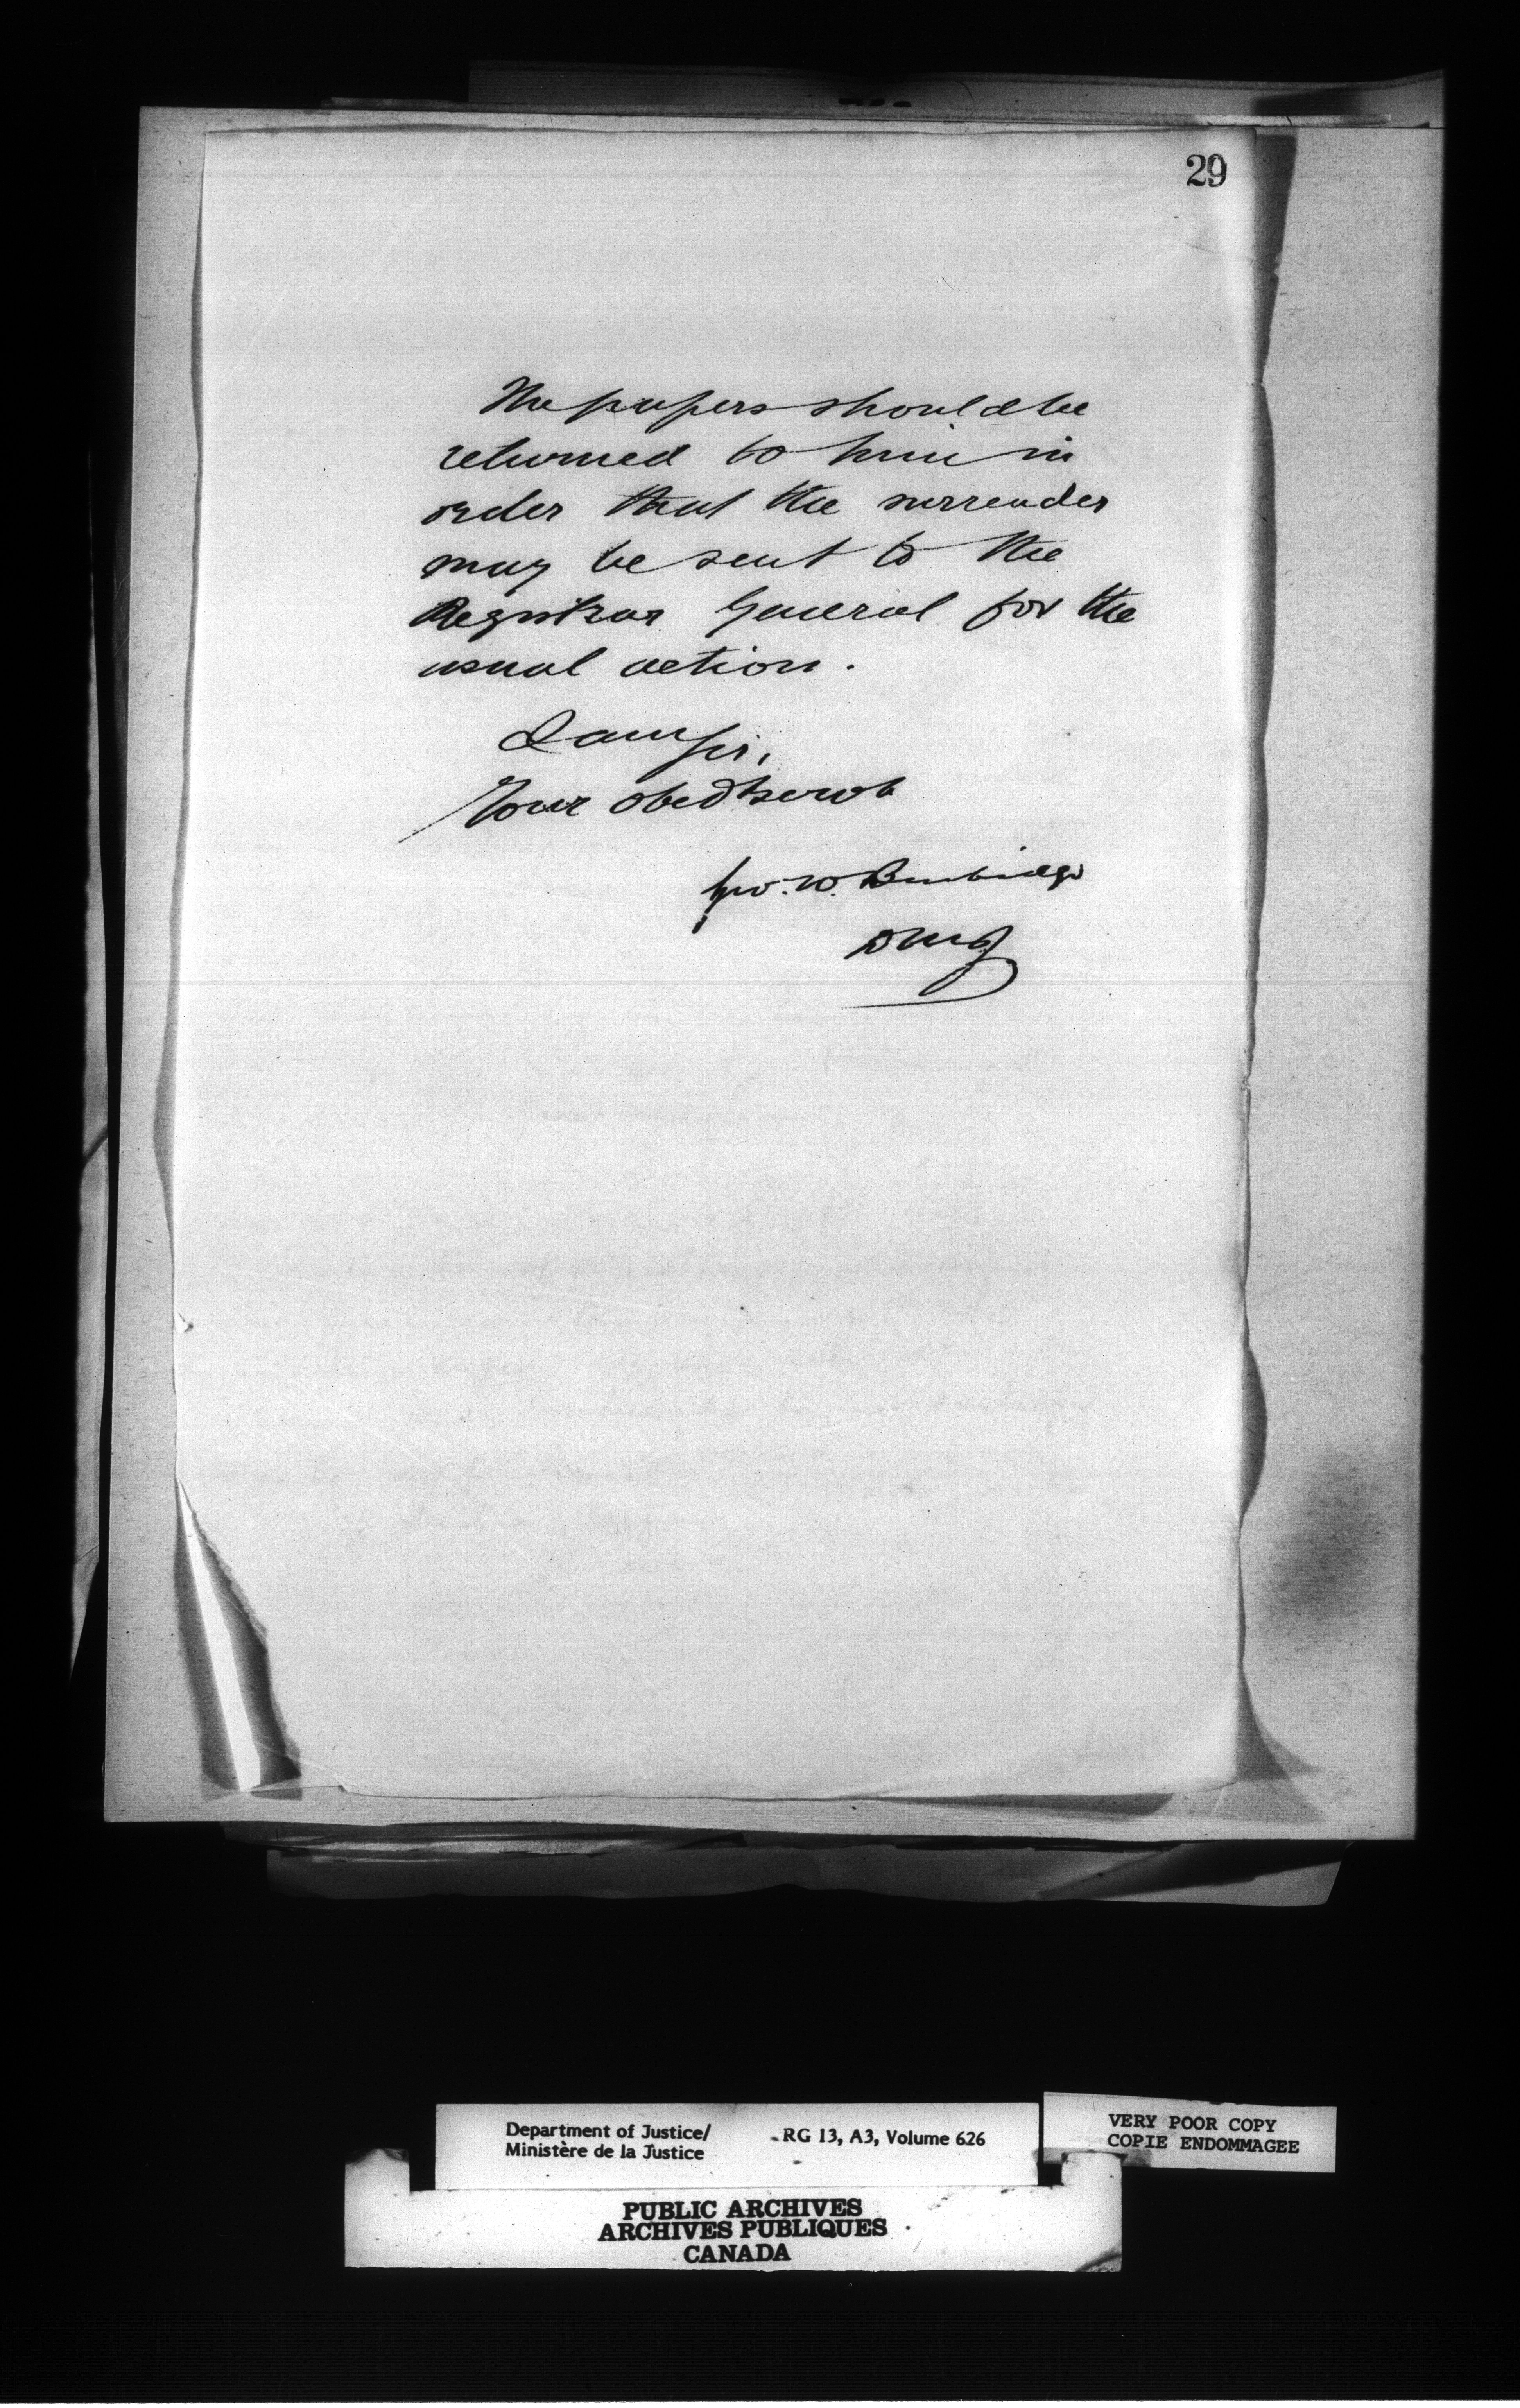 29
The papers should be
returned to him in
order that the surrender
may be sent to the
Registrar General for the
usual action.
I am Sir,
Your obedt servt
Geo. W. Burbidge
DMJ
Department of Justice/
Ministère de la Justice
RG 13, A3, Volume 626
VERY POOR COPY
COPIE ENDOMMAGEE
PUBLIC ARCHIVES
ARCHIVES PUBLIQUES
CANADA